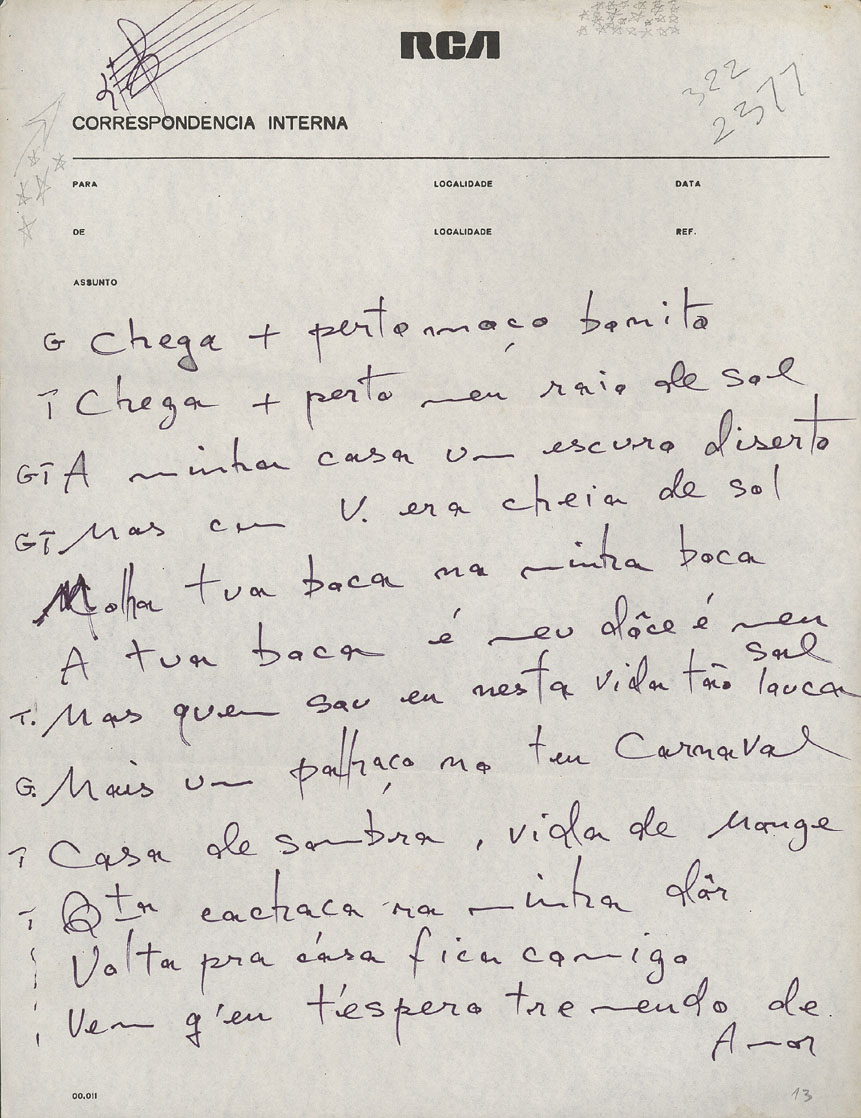 RCA
322
2377
CORRESPONDENCIA INTERNA
PARA LOCALIDADE DATA
DE LOCALIDADE REF.
ASSUNTO
G Chega + perto moço bonito
T Chega + perto meu raio de sol
GT A minha casa um escuro diserto
GT Mas com V. era cheia de sol
Molha tua boca na minha boca
A tua boca é meu dôce é meu
sal
T. Mas quem sou eu nesta vida tão louca
G. Mais um palhaço no teu Carnaval
T Casa de sombra, vida de monge
T Qta cachaca na minha dôr
Volta pra casa fica comigo
Vem q'eu t'espero tremendo de
Amor
00.011 13